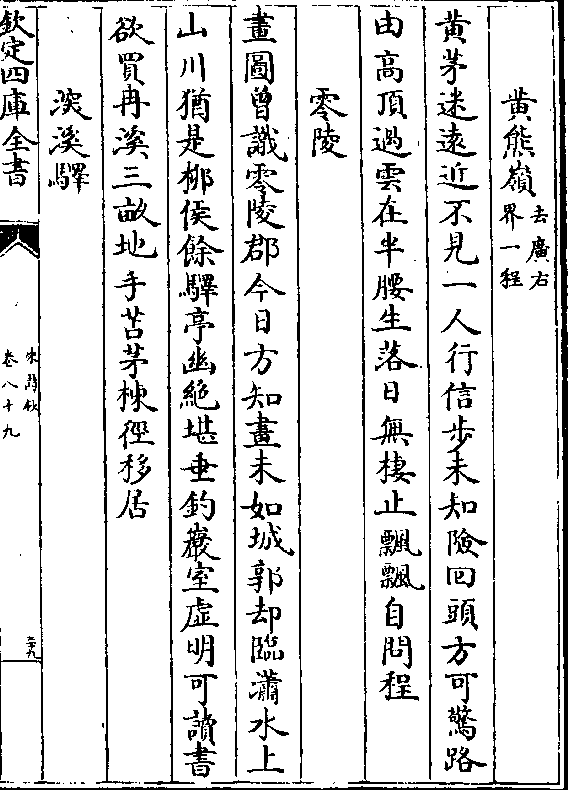 黄熊嶺去廣右
界一程
黄茅迷遠近不見一人行信步未知險回頭方可驚路
由高頂過雲在半腰生落日無棲止飄飄自問程
零陵
畫圖曾識零陵郡今日方知畫未如城郭却臨瀟水上
山川猶是栁侯餘驛亭幽絶堪垂釣巖室虛明可讀書
欲買冉溪三畝地手苫茅棟徑移居
淡溪驛
欽定四庫全書
宋詩鈔
卷八十九
二十九